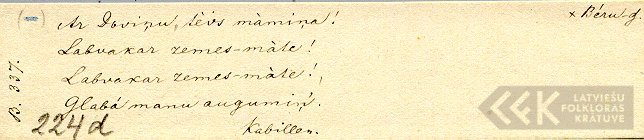 (1)
Ar Doviņu, tēvs māmiņa!
× Bēru dz.
Labvakar zemes-māte!
Labvakar zemes-māte!,
Glabā manu augumiņ'.
Kabillen.
B. 337.
224d
LATVIEŠU
FOLKLORAS
KRĀTUVE